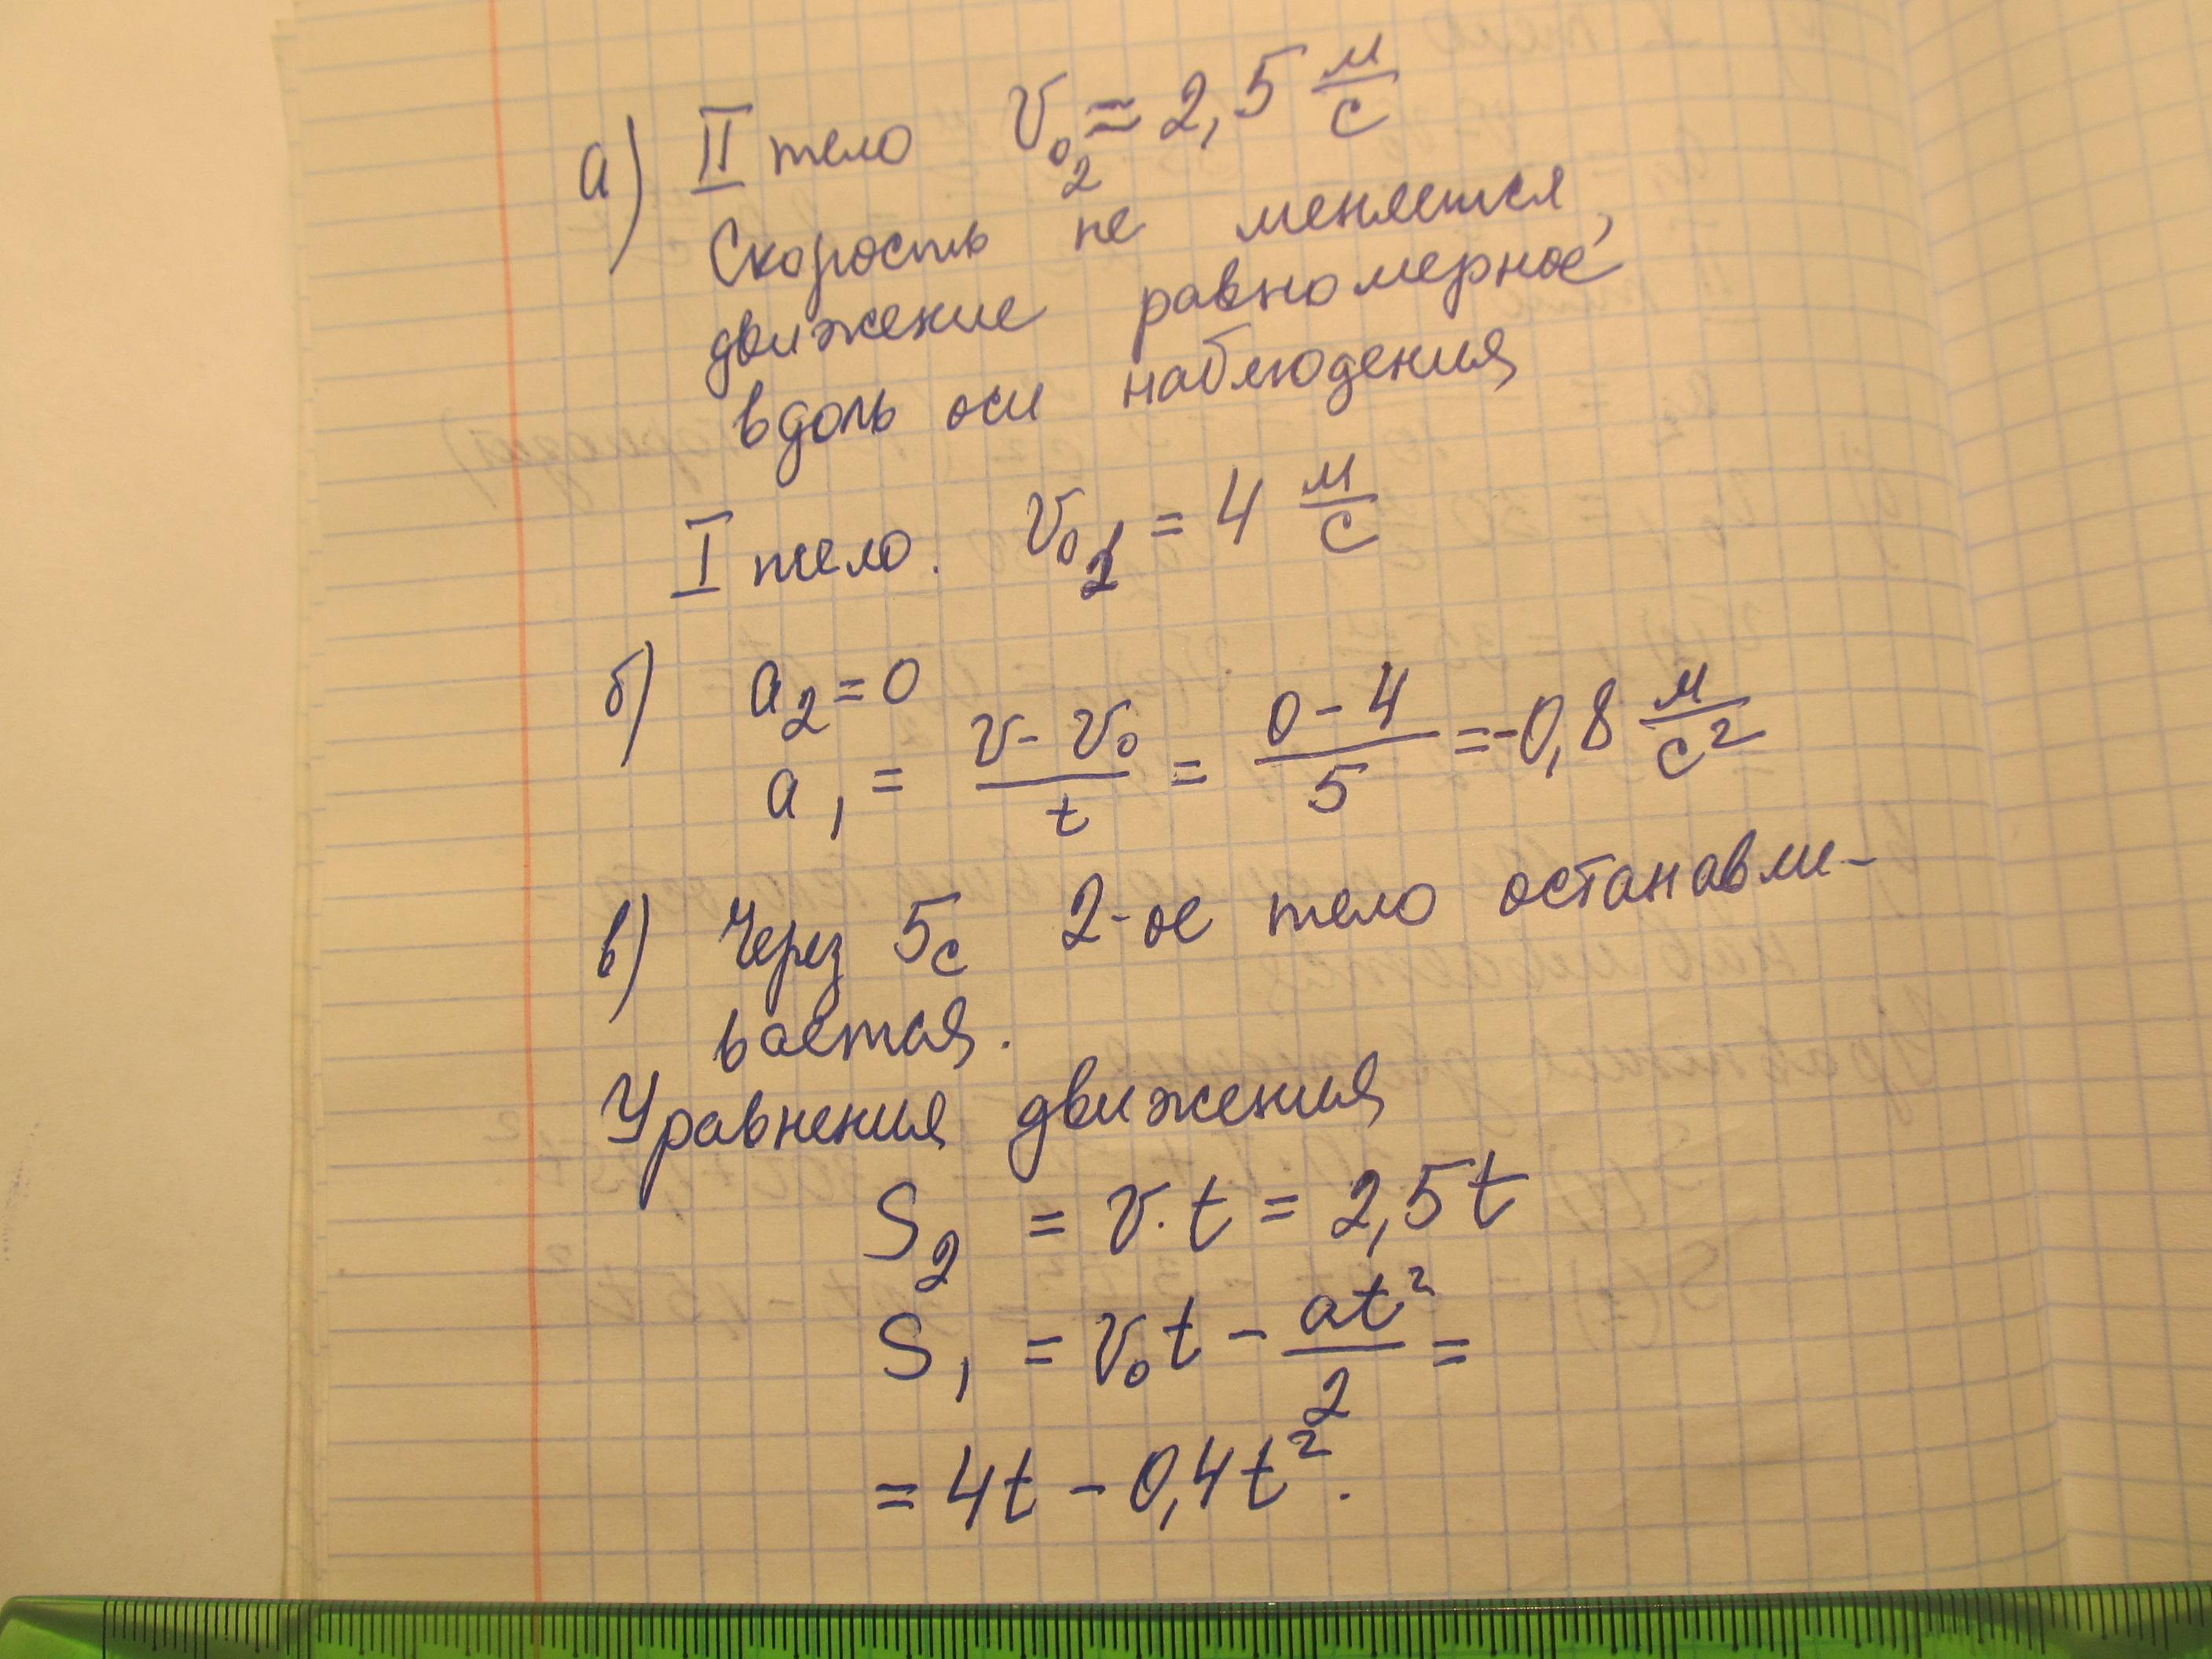 а) II тело V₀₂ ≈ 2,5 м/с
Скорость не меняется,
движение равномерное
вдоль оси наблюдения
I тело. V₀₁ = 4 м/с
б) a₂ = 0
a₁ = (v - v₀)/t = (0 - 4)/5 = -0,8 м/с²
в) Через 5с 2-ое тело останавли-
вается.
Уравнения движения
S₂ = v · t = 2,5t
S₁ = v₀t - at²/2 =
= 4t - 0,4t².